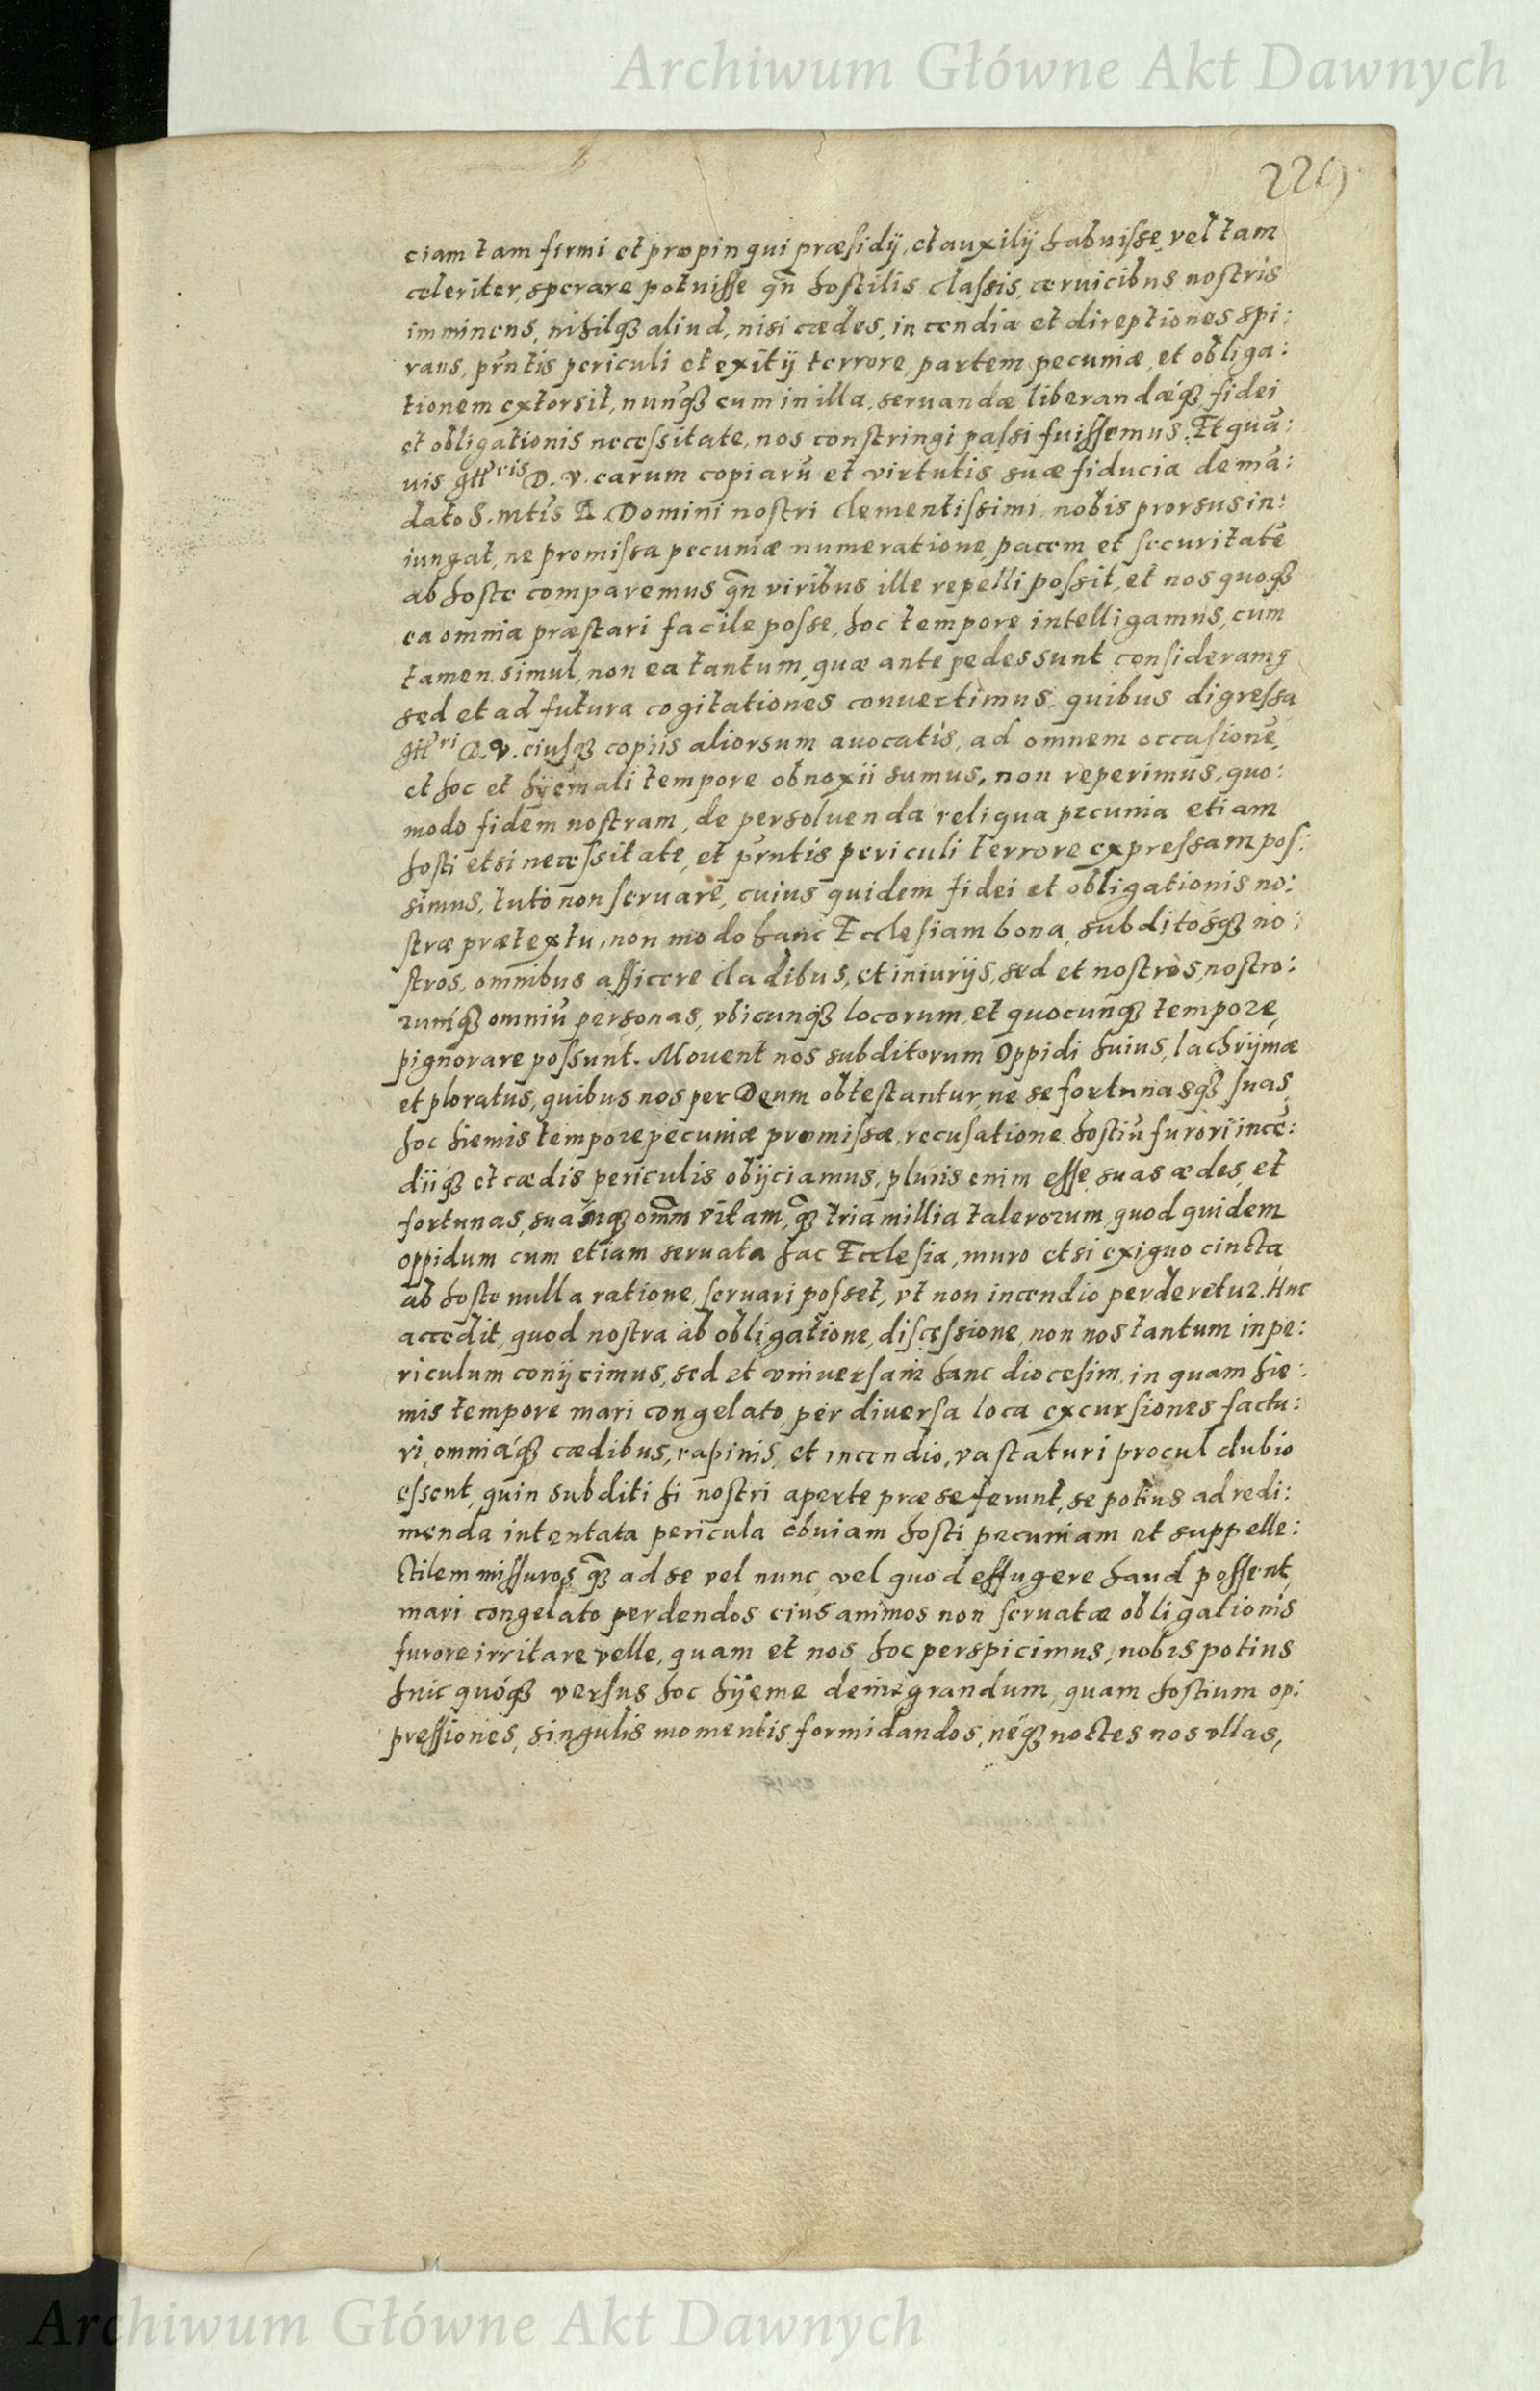 Archiwum Główne Akt Dawnych
229
ciam tam firmi et propinqui præsidÿ, et auxilÿ habuisse, vel tam
celeriter, sperare potuisse qn̄ hostilis classis, ceruicibus nostris
imminens, nihilqꝫ aliud, nisi cædes, incendia et direptiones spi:
rans, pr̄ntis periculi et exitÿ terrore, partem pecuniæ, et obliga:
tionem extorsit, nunqꝫ cum in illa, seruandæ liberandǽqꝫ fidei
et obligationis necessitate, nos constringi passi fuissemus. Et quā:
uis D. V. earum copiarū et virtutis suæ fiducia de mā:
dato S. mtis R. Domini nostri clementissimi nobis prorsus in:
iungat, ne promissa pecuniæ numeratione, pacem et securitatē
ab hoste comparemus qn̄ viribus ille repelli possit, et nos quoqꝫ
ea omnia præstari facile posse, hoc tempore intelligamus, cum
tamen simul, non ea tantum, quæ ante pedes sunt consideramꝰ
sed et ad futura cogitationes conuertimus, quibus digressa
D. V. eiusqꝫ copiis aliorsum auocatis, ad omnem occasionē,
et hoc et hÿemali tempore obnoxii sumus, non reperimus, quo:
modo fidem nostram, de persoluenda reliqua pecunia etiam
hosti etsi necessitate, et pr̄ntis periculi terrore expressam pos:
simus, tuto non seruare, cuius quidem fidei et obligationis no:
stræ prætextu, non modo hanc Ecclesiam bona, subditósqꝫ no:
stros, omnibus afficere cladibus, et iniurÿs, sed et nostros, nostro:
rumqꝫ omniū personas, vbicunqꝫ locorum, et quocunqꝫ tempore,
pignorare possunt. Mouent nos subditorum Oppidi huius, lachrÿmæ
et ploratus, quibus nos per Deum obtestantur, ne se fortunasqꝫ suas,
hoc hiemis tempore pecuniæ promissæ, recusatione hostiū furori incē:
diiqꝫ et cædis periculis obÿciamus, pluris enim esse, suas ædes, et
fortunas, suámqꝫ omm̄ vitam, qꝫ tria millia talerorum, quod quidem
oppidum cum etiam seruata hac Ecclesia, muro etsi exiguo cincta,
ab hoste nulla ratione, seruari posset, vt non incendio perderetur. Huc
accedit, quod nostra ab obligatione, discessione, non nos tantum in pe:
riculum conÿcimus, sed et vniuersam hanc diocesim, in quam hie:
mis tempore mari congelato, per diuersa loca excursiones factu:
ri, omniáqꝫ cædibus, rapinis, et incendio, vastaturi procul dubio
essent, quin subditi hi nostri aperte præ se ferunt, se potius ad redi:
menda intentata pericula obuiam hosti pecuniam et suppelle:
ctilem missuros qꝫ ad se vel nunc, vel quod effugere haud possent,
mari congelato perdendos eius animos non seruatæ obligationis
furore irritare velle, quam et nos hoc perspicimus, nobis potius
huic quóqꝫ versus hoc hÿeme demigrandum, quam hostium op:
pressiones, singulis momentis formidandos, néqꝫ noctes nos vllas,
Archiwum Główne Akt Dawnych